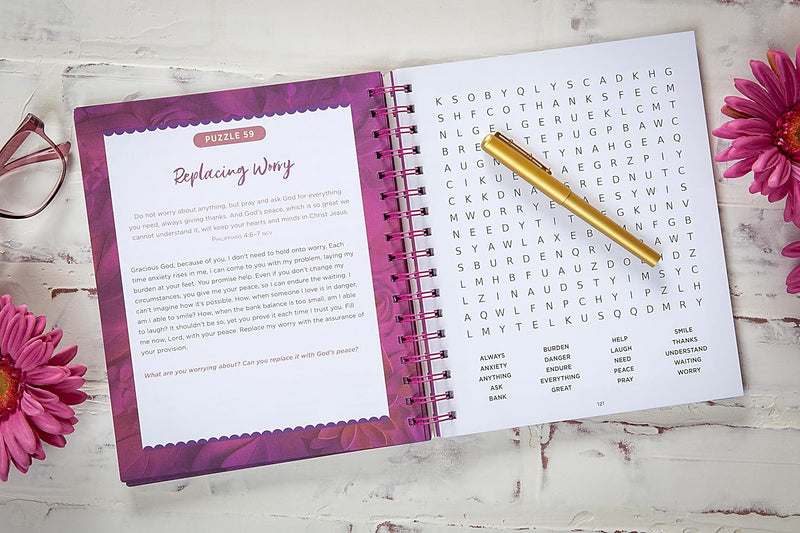 PUZZLE 59
Replacing Worry
Do not worry about anything, but pray and ask God for everything
you need, always giving thanks. And God's peace, which is so great we
cannot understand it, will keep your hearts and minds in Christ Jesus.
PHILIPPIANS 4:6–7 NCV
Gracious God, because of you, I don't need to hold onto worry. Each
time anxiety rises in me, I can come to you with my problem, laying my
burden at your feet. You promise help. Even if you don't change my
circumstances, you give me your peace, so I can endure the waiting. I
can't imagine how it's possible. How, when someone I love is in danger,
am I able to smile? How, when the bank balance is too small, am I able
to laugh? It shouldn't be so, yet you prove it each time I trust you. Fill
me now, Lord, with your peace. Replace my worry with the assurance of
your provision.
What are you worrying about? Can you replace it with God's peace?
K S O B Y Q L Y S C A D K H G
S H F C O T H A N K S F E C M
N L G E L G E R U E K L C M T
B R E T E P U G P B A W C
A U G N T Y N A H G E A Q
C I K U E A E G R Z P I Y
C K K D N A R E D N U T C
M W O R R Y E A S Y W I S
N E E D Y T T G K U N V
S Y A W L A X B N F G B
S B U R D E N Q R V A W T
L M H B F U A U Z D O D Z
L Z I N A U D S T Y M S Y C
A Q W L F N P C H Y I F Z L H
L M Y T E L K U S Q Q D M R Y
ALWAYS BURDEN HELP SMILE
ANXIETY DANGER LAUGH THANKS
ANYTHING ENDURE NEED UNDERSTAND
ASK EVERYTHING PEACE WAITING
BANK GREAT PRAY WORRY
121